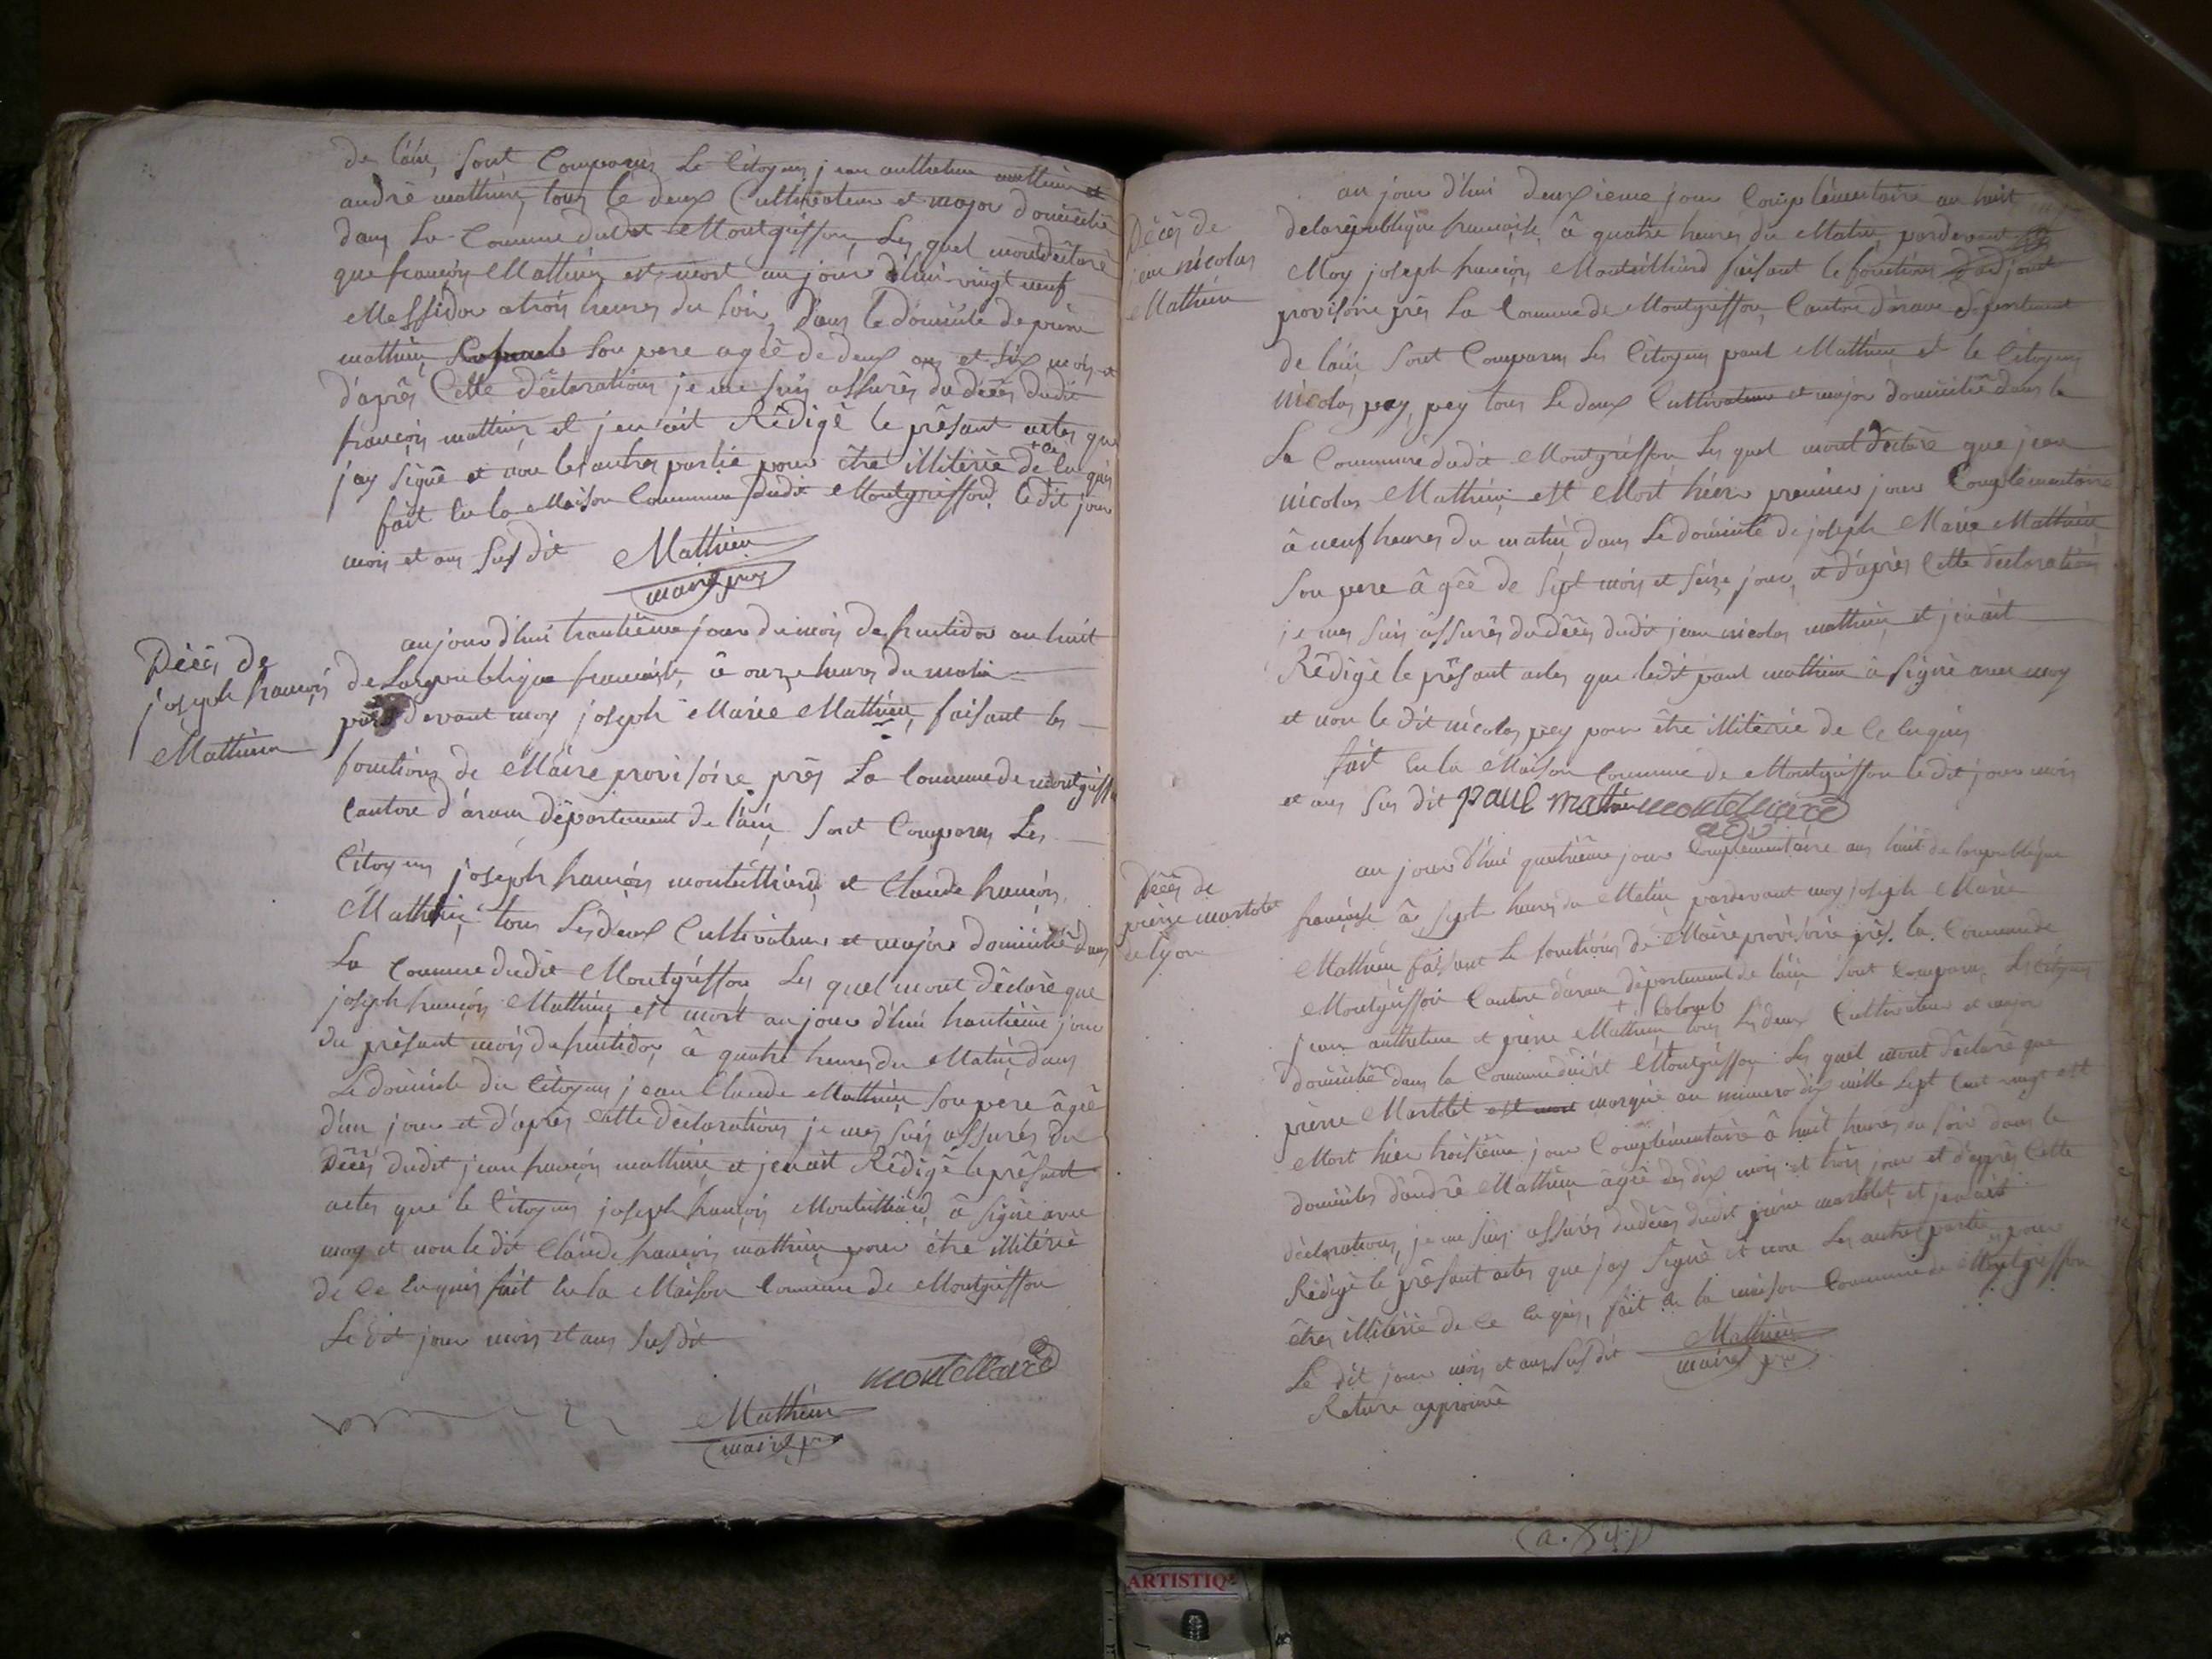 de l'ain, sont Comparus Le Citoyens jean anthelme mathieu et
andrè mathieu, tous le deux Cultivateur et major domicilié
dans La Commune dudit Montgriffon, Les quel mont dêclarê
que françois Mathieu est mort au jour d'hui vingt neuf
Messidor a trois heures du Soir, dans le domicile de pierre
mathieu son pere ageê de deux ans et six mois et
d'aprês Cette dêclarations je me suis assurês du dêcês dudit
françois mathieu et jen'ait Rêdigê le prêsant actes que
j'ay Signê et non les autres partie pour être illiterie de +ce enquis
fait En la Maison Commune dudit Montgriffond le dit jour
mois et ans Susdit Mathieu
maire pro
Décès de
joseph françois
Mathieu
aujourd'hui trantième jour du mois de fructidor an huit
de Larepublique française, â onze heures du matin
par devant moy joseph Marie Mathieu, faisant les
fonctions de Maire provisoire près La Commune de montgriffon
Canton d'aranc Département de l'ain Sont Comparus Les
Citoyens joseph françois montillard et Claude françois
Mathieu tous Les deux Cultivateur et major domicilié dans
La Commune dudit Montgriffon Les quel mont dêclarê que
joseph françois Mathieu est mort au jour d'hui trantième jour
du prêsant mois de fructidor â quatre heures du Matin dans
Le domicile du Citoyens jean Claude Mathieu son pere âgeê
d'un jour et d'aprês cette dêclarations je mes suis assurés du
Dècès dudit jean françois mathieu et jenait Rêdigê le prêsant
actes que le Citoyens joseph françois Montilliard â Signê avec
moy et non le dit Claude françois mathieu pour être illitèriè
de Ce enquis fait En la Maison Commune de Montgriffon
Le dit jour mois et ans Susdit
montelliard
Mathieu
maire pro
Décès de
jean nicolas
Mathieu
au jour d'hui deuxieme jour Complémentaire an huit
delarêpublique française, â quatre heures du Matin, pardevant
Moy joseph françois Montilliard faisant le fonctions d'adjoint
provisoire près La Commune de Montgriffon, Canton d'aranc Département
de l'ain Sont Comparus Les Citoyens paul Mathieu et le Citoyens
nicolas pey, pey tous Le deux Cultivateur et major domicilié dans la
La Commune dudit Montgriffon Les quel mont dêclarê que jean
nicolas Mathieu est Mort hier premier jour Complémentaire
â neuf heures du matin dans Le domicile de joseph Marie Mathieu
Son pere âgeê de Sept mois et seize jour, et d'aprês Cette dêclarations
je mes suis assurês du dêcês dudit jean nicolas mathieu et jenait
Rêdigê le prêsant actes que ledit paul mathieu â signé avec moy
et non le dit nicolas pey pour être illiterie de Ce enquis
fait En la Maison Commune de Montgriffon le dit jour mois
et ans Susdit paul mathieu montelliard
adj
Décès de
pierre martelet
de lyon
au jour d'hui quatrième jour Complémentaire ans huit de larepublique
française â sept heures du Matin pardevant moy joseph Marie
Mathieu faisant Le fonctions de Maire provisoire près la Commune de
Montgriffon Canton d'aranc département de l'ain sont Comparus Les Citoyens
jean anthelme et pierre Mathieu + Colomb tous Les deux Cultivateur et major
domicilié dans la Commune dudit Montgriffon Les quel mont dêclarê que
pierre Martelet est mort marquê au numero dix mille Sept Cent vingt est
Mort hier troisième jour Complémentaire â huit heures du Soir dans le
domiciles d'andrê Mathieu âgeê des dix mois et trois jour et d'aprês Cette
dèclarations, je me suis assurés du dècès dudit pierre martelet, et jenait
Rêdigê le prêsant actes que j'ay Signê et non Les autres partie pour
êtres illitêriê de Ce enquis, fait En la maison Commune de Montgriffon
Le dit jour mois et ans Susdit Mathieu
maire pro
Rature approuvê
ARTISTIQ